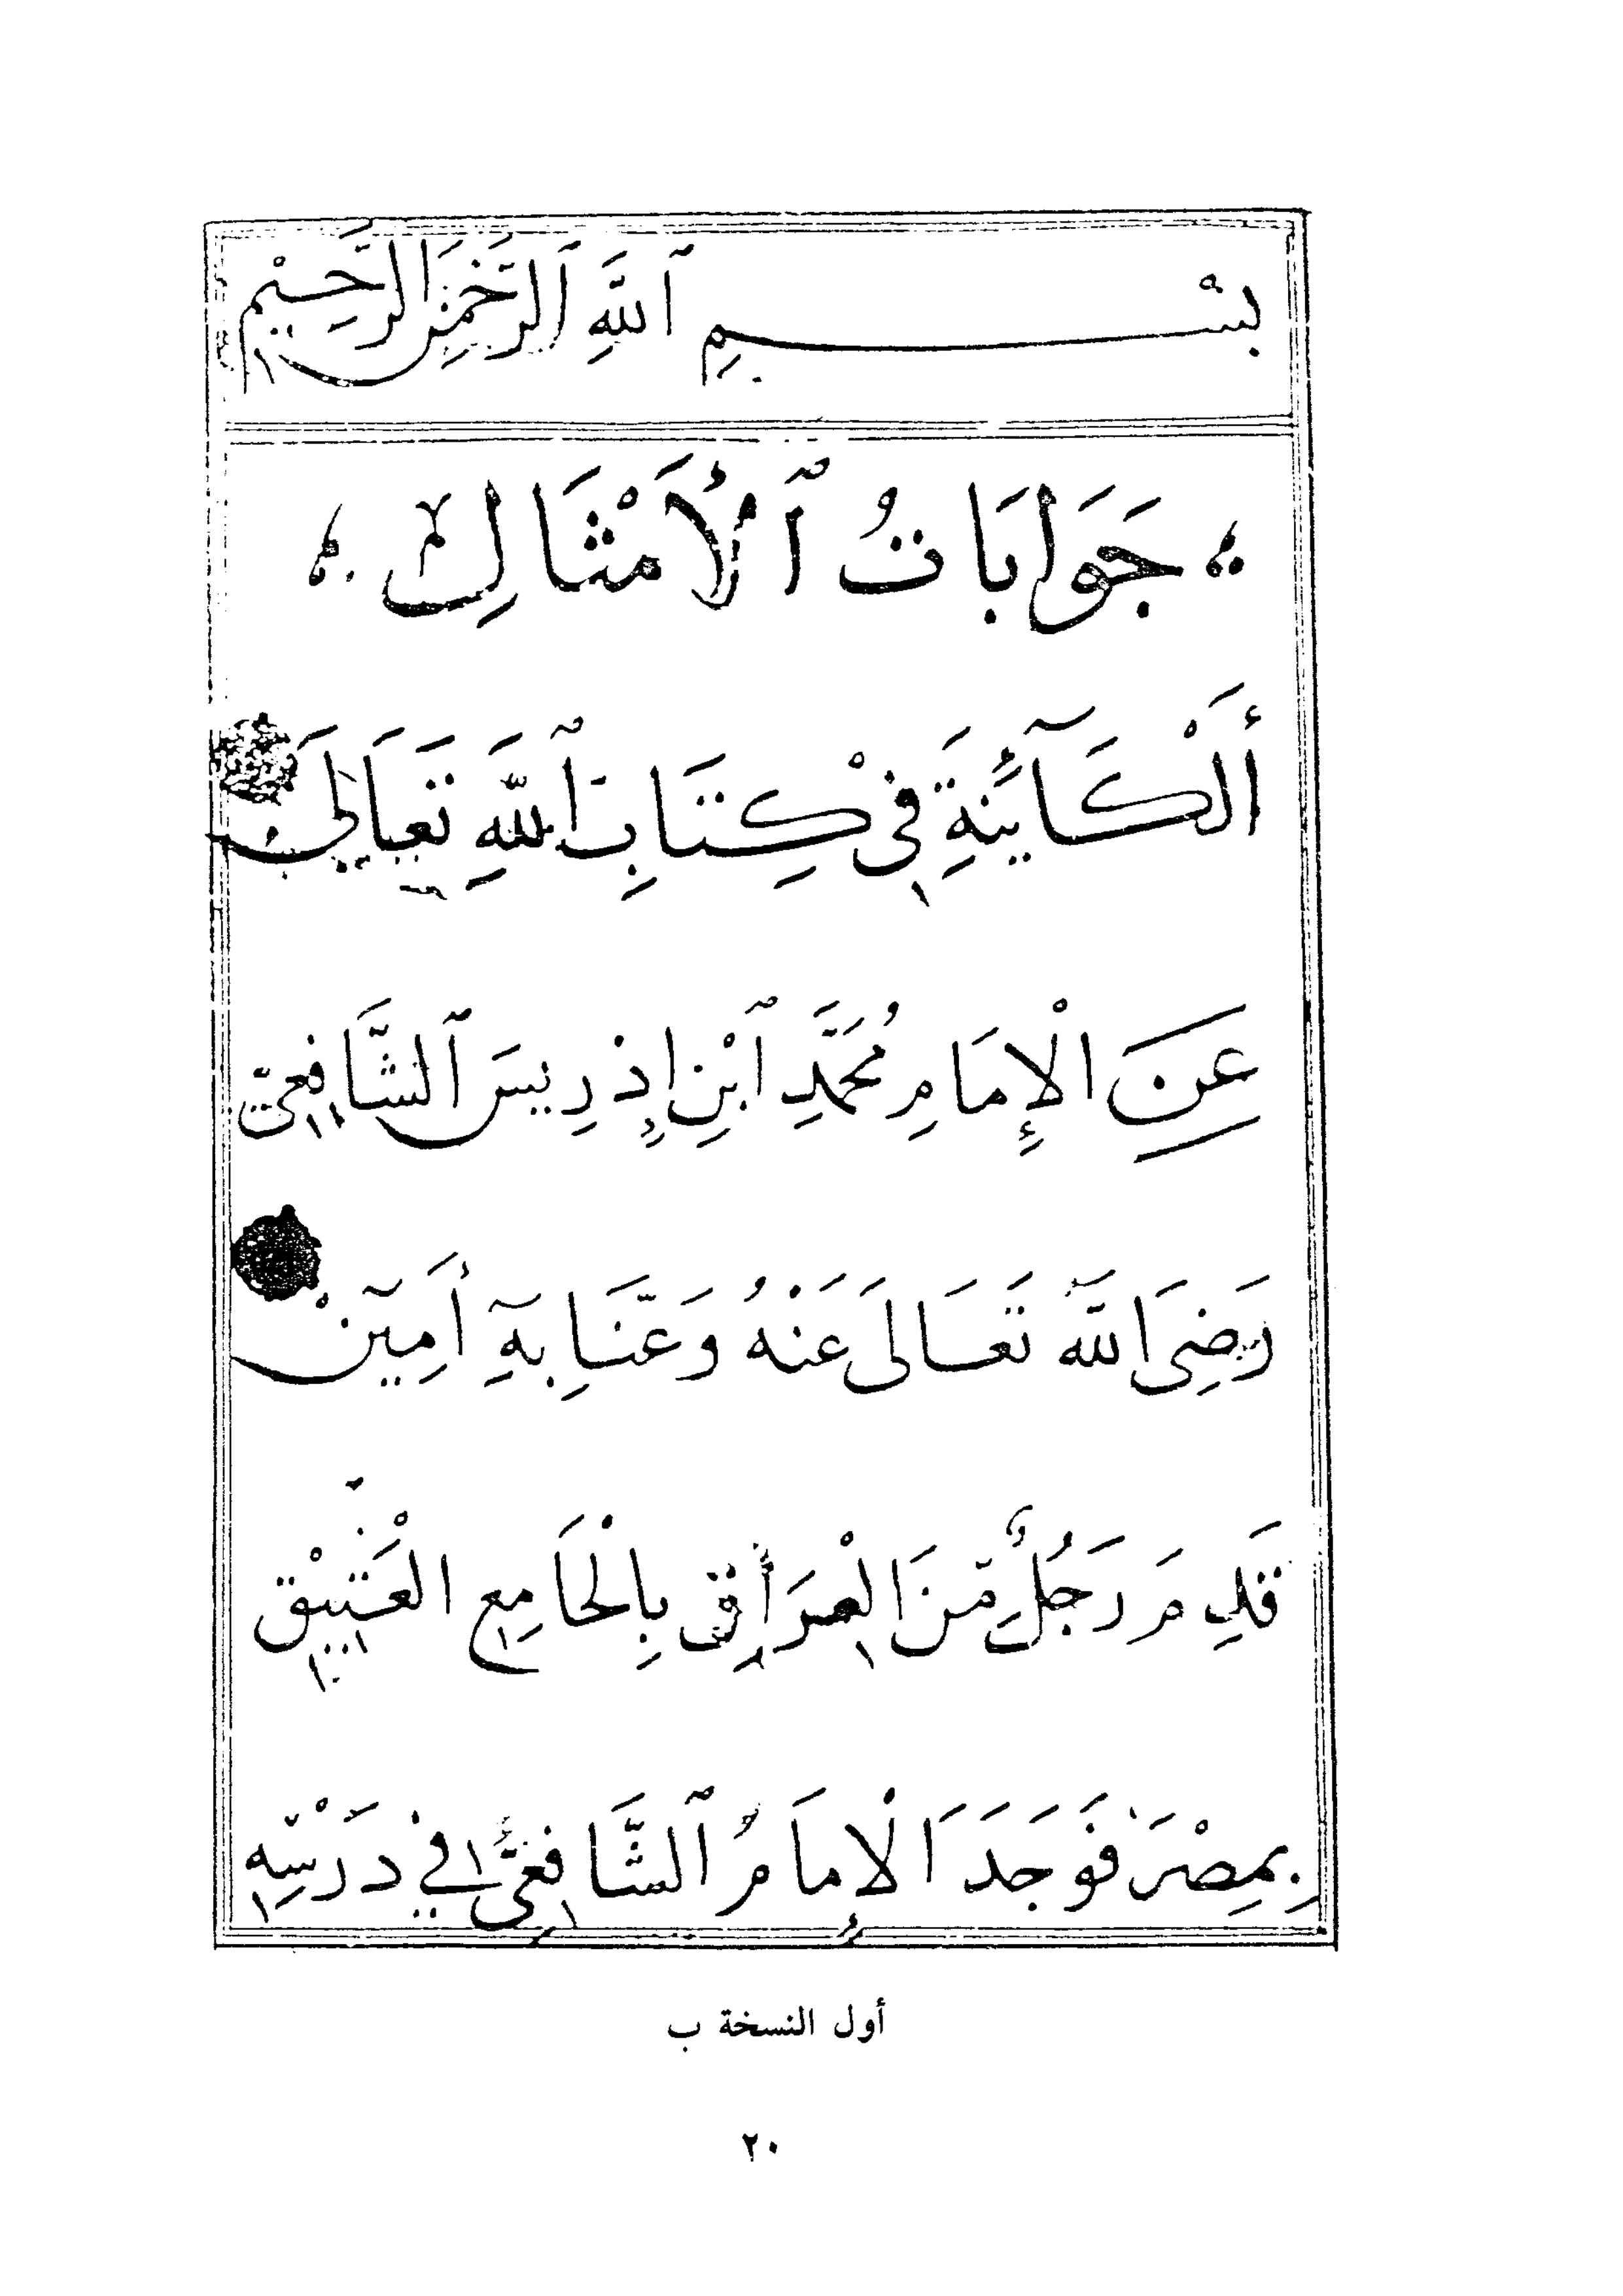 بِسْمِ ٱللَّهِ ٱلرَّحْمَنِ الرَّحِيْمِ
جَوَابَاتُ ٱلْأَمْثَالِ
أَلْكَآئِنَةِ فِى كِتَابِ ٱللَّهِ تَعَالَى
عَنِ الْإِمَامِ مُحَمَّدِ ٱبْنِ إِدْرِيسَ ٱلشَّافِعِيّ
رَضِىَ اللَّهُ تَعَالَى عَنْهُ وَعَنَّا بِهِ أَمِيَنْ
قَدِمَ رَجُلٌ مِّنَ الْعِرَاقِ بِالْجَامِعِ الْعَتِيْقِ
بِمِصْرَ فَوَجَدَ الْإِمَامُ ٱلشَّافِعِىُّ فِي دَرْسِهِ
أول النسخة ب
٢٠